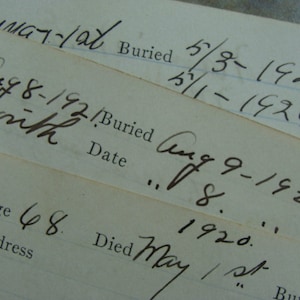 May-1st Buried 5/3-192
5/1-192
8-1921. Buried Aug 9-192
Date " 8. "
1920.
68. Died May 1st Bu
dress